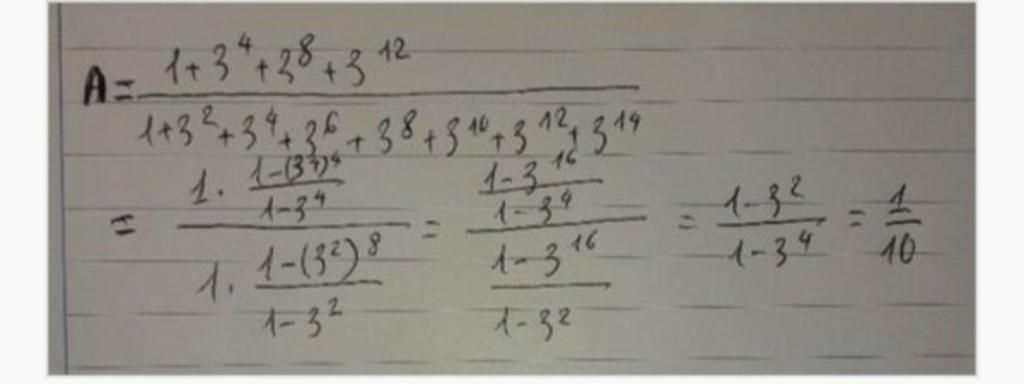 A = (1+3^4+3^8+3^12)/(1+3^2+3^4+3^6+3^8+3^10+3^12+3^14)
= (1·(1-(3^4)^4)/(1-3^4))/(1·(1-(3^2)^8)/(1-3^2)) = ((1-3^16)/(1-3^4))/((1-3^16)/(1-3^2)) = (1-3^2)/(1-3^4) = 1/10